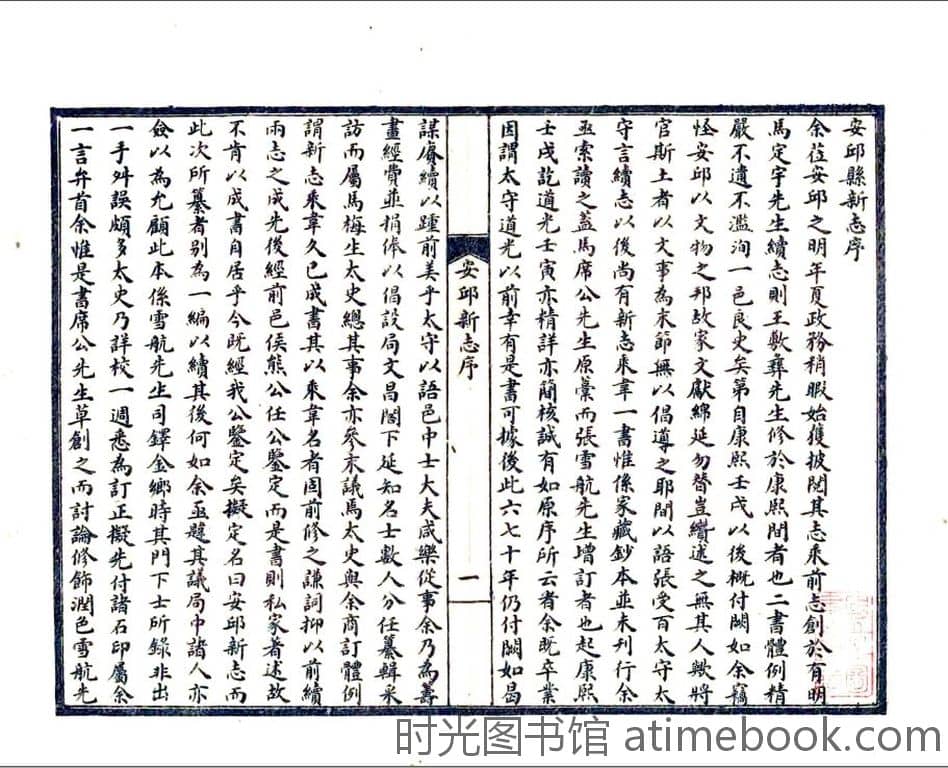 安邱縣新志序
余莅安邱之明年夏政務稍暇始獲披閱其志乘前志創於有明
馬定宇先生續志則王斆彞先生修於康熙間者也二書體例精
嚴不遺不濫洵一邑良史矣第自康熙壬戌以後概付闕如余竊
怪安邱以文物之邦故家文獻綿延勿替豈纘述之無其人歟將
官斯土者以文事為末節無以倡導之耶間以語張受百太守太
守言續志以後尚有新志乘韋一書惟係家藏鈔本並未刊行余
亟索讀之蓋馬席公先生原稾而張雪航先生增訂者也起康熙
壬戌訖道光壬寅亦精詳亦簡核誠有如原序所云者余既卒業
因謂太守道光以前幸有是書可據後此六七十年仍付闕如曷
安邱新志序
一
謀賡續以踵前美乎太守以語邑中士大夫咸樂從事余乃為籌
畫經費並捐俸以倡設局文昌閣下延知名士數人分任纂輯采
訪而屬馬梅生太史總其事余亦參末議焉太史與余商訂體例
謂新志乘韋久已成書其以乘韋名者固前修之謙詞抑以前續
兩志之成先後經前邑侯熊公任公鑒定而是書則私家著述故
不肯以成書自居乎今既經我公鑒定矣擬定名曰安邱新志而
此次所纂者別為一編以續其後何如余亟韙其議局中諸人亦
僉以為允顧此本係雪航先生司鐸金鄉時其門下士所錄非出
一手舛誤頗多太史乃詳校一週悉為訂正擬先付諸石印屬余
一言弁首余惟是書席公先生草創之而討論修飾潤色雪航先
时光图书馆 atimebook.com